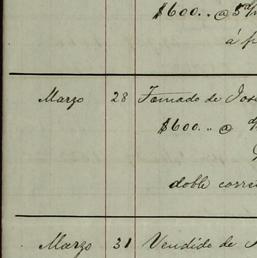 $600.. @ 5
á
Marzo 28 Tomado de José
$600.. @
doble corre
Marzo 31 Vendido de